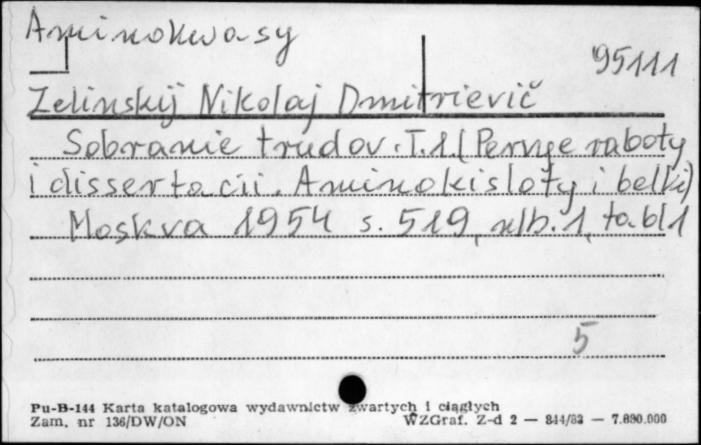 Aminokwasy
95111
Zelinskij Nikolaj Dmitrievič
Sobranie trudov. T.1 (Pervye raboty
i dissertacii. Aminokisloty i belki)
Moskva 1954 s. 519, alb. 1, tabl 1
5
Pu-B-144 Karta katalogowa wydawnictw zwartych i ciągłych
Zam. nr 136/DW/ON WZGraf. Z-d 2 — 844/83 — 7.890.000